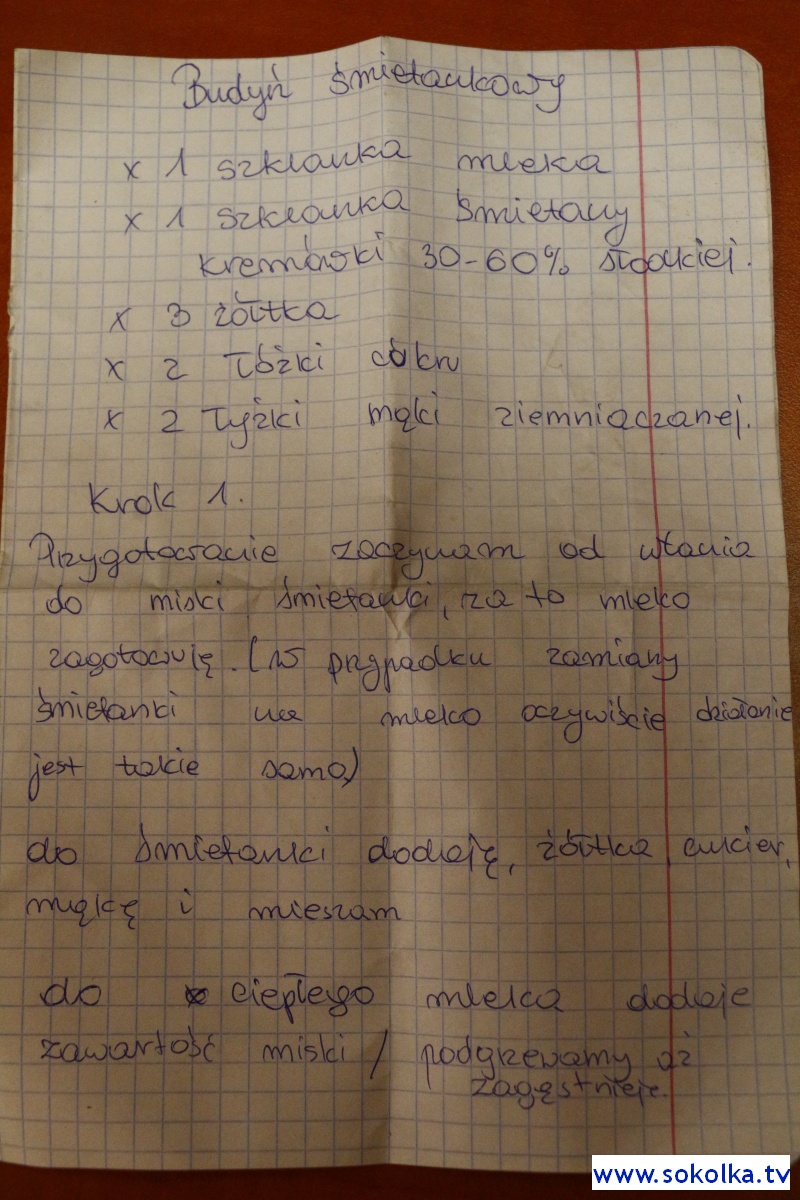 Budyń śmietankowy
x 1 szklanka mleka
x 1 szklanka śmietany
kremówki 30-60% słodkiej.
x 3 żółtka
x 2 łóżki cukru
x 2 łyżki mąki ziemniaczanej.
Krok 1.
Przygotowanie zaczynam od wlania
do miski śmietanki, za to mleko
zagotowuję. (w przypadku zamiany
śmietanki na mleko oczywiście działanie
jest takie samo)
do śmietanki dodaję, żółtka, cukier,
mąkę i mieszam
do ciepłego mleka dodaje
zawartość miski / podgrzewamy aż
zagęstnieje.
www.sokolka.tv